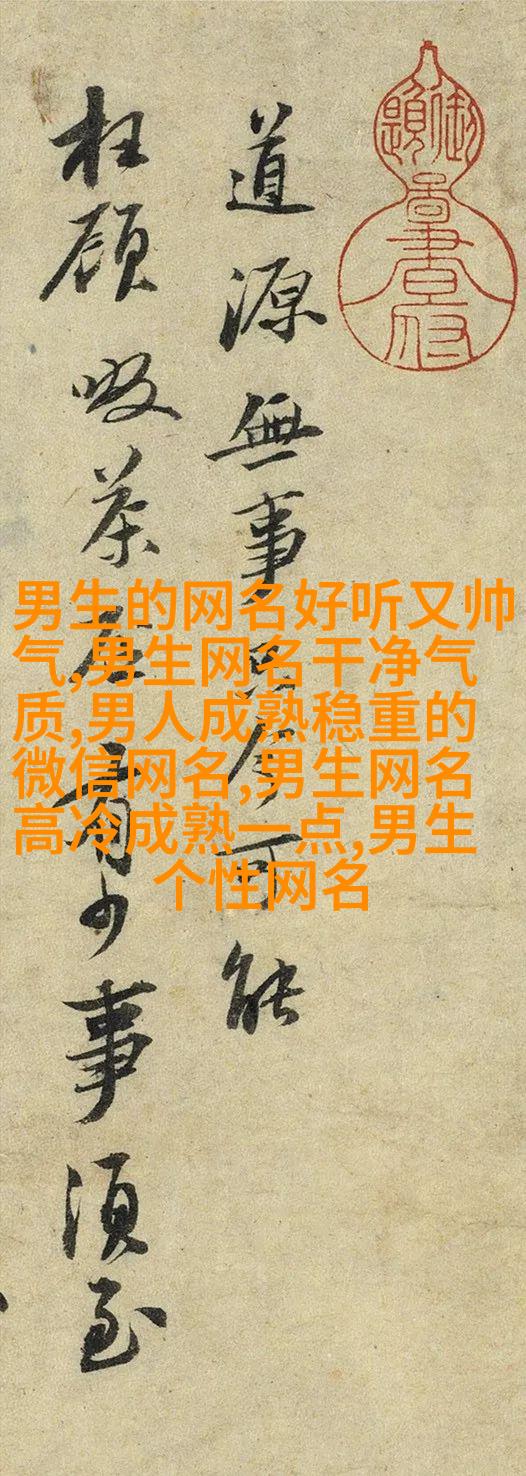 道源無事只今可能
枉顧啜茶否有少事須至
男生的网名好听又帅
气,男生网名干净气
质,男人成熟稳重的
微信网名,男生网名
高冷成熟一点,男生
个性网名